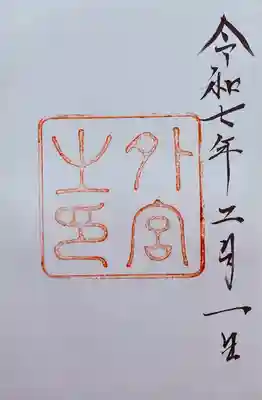 令和七年二月一日
外宮
之印